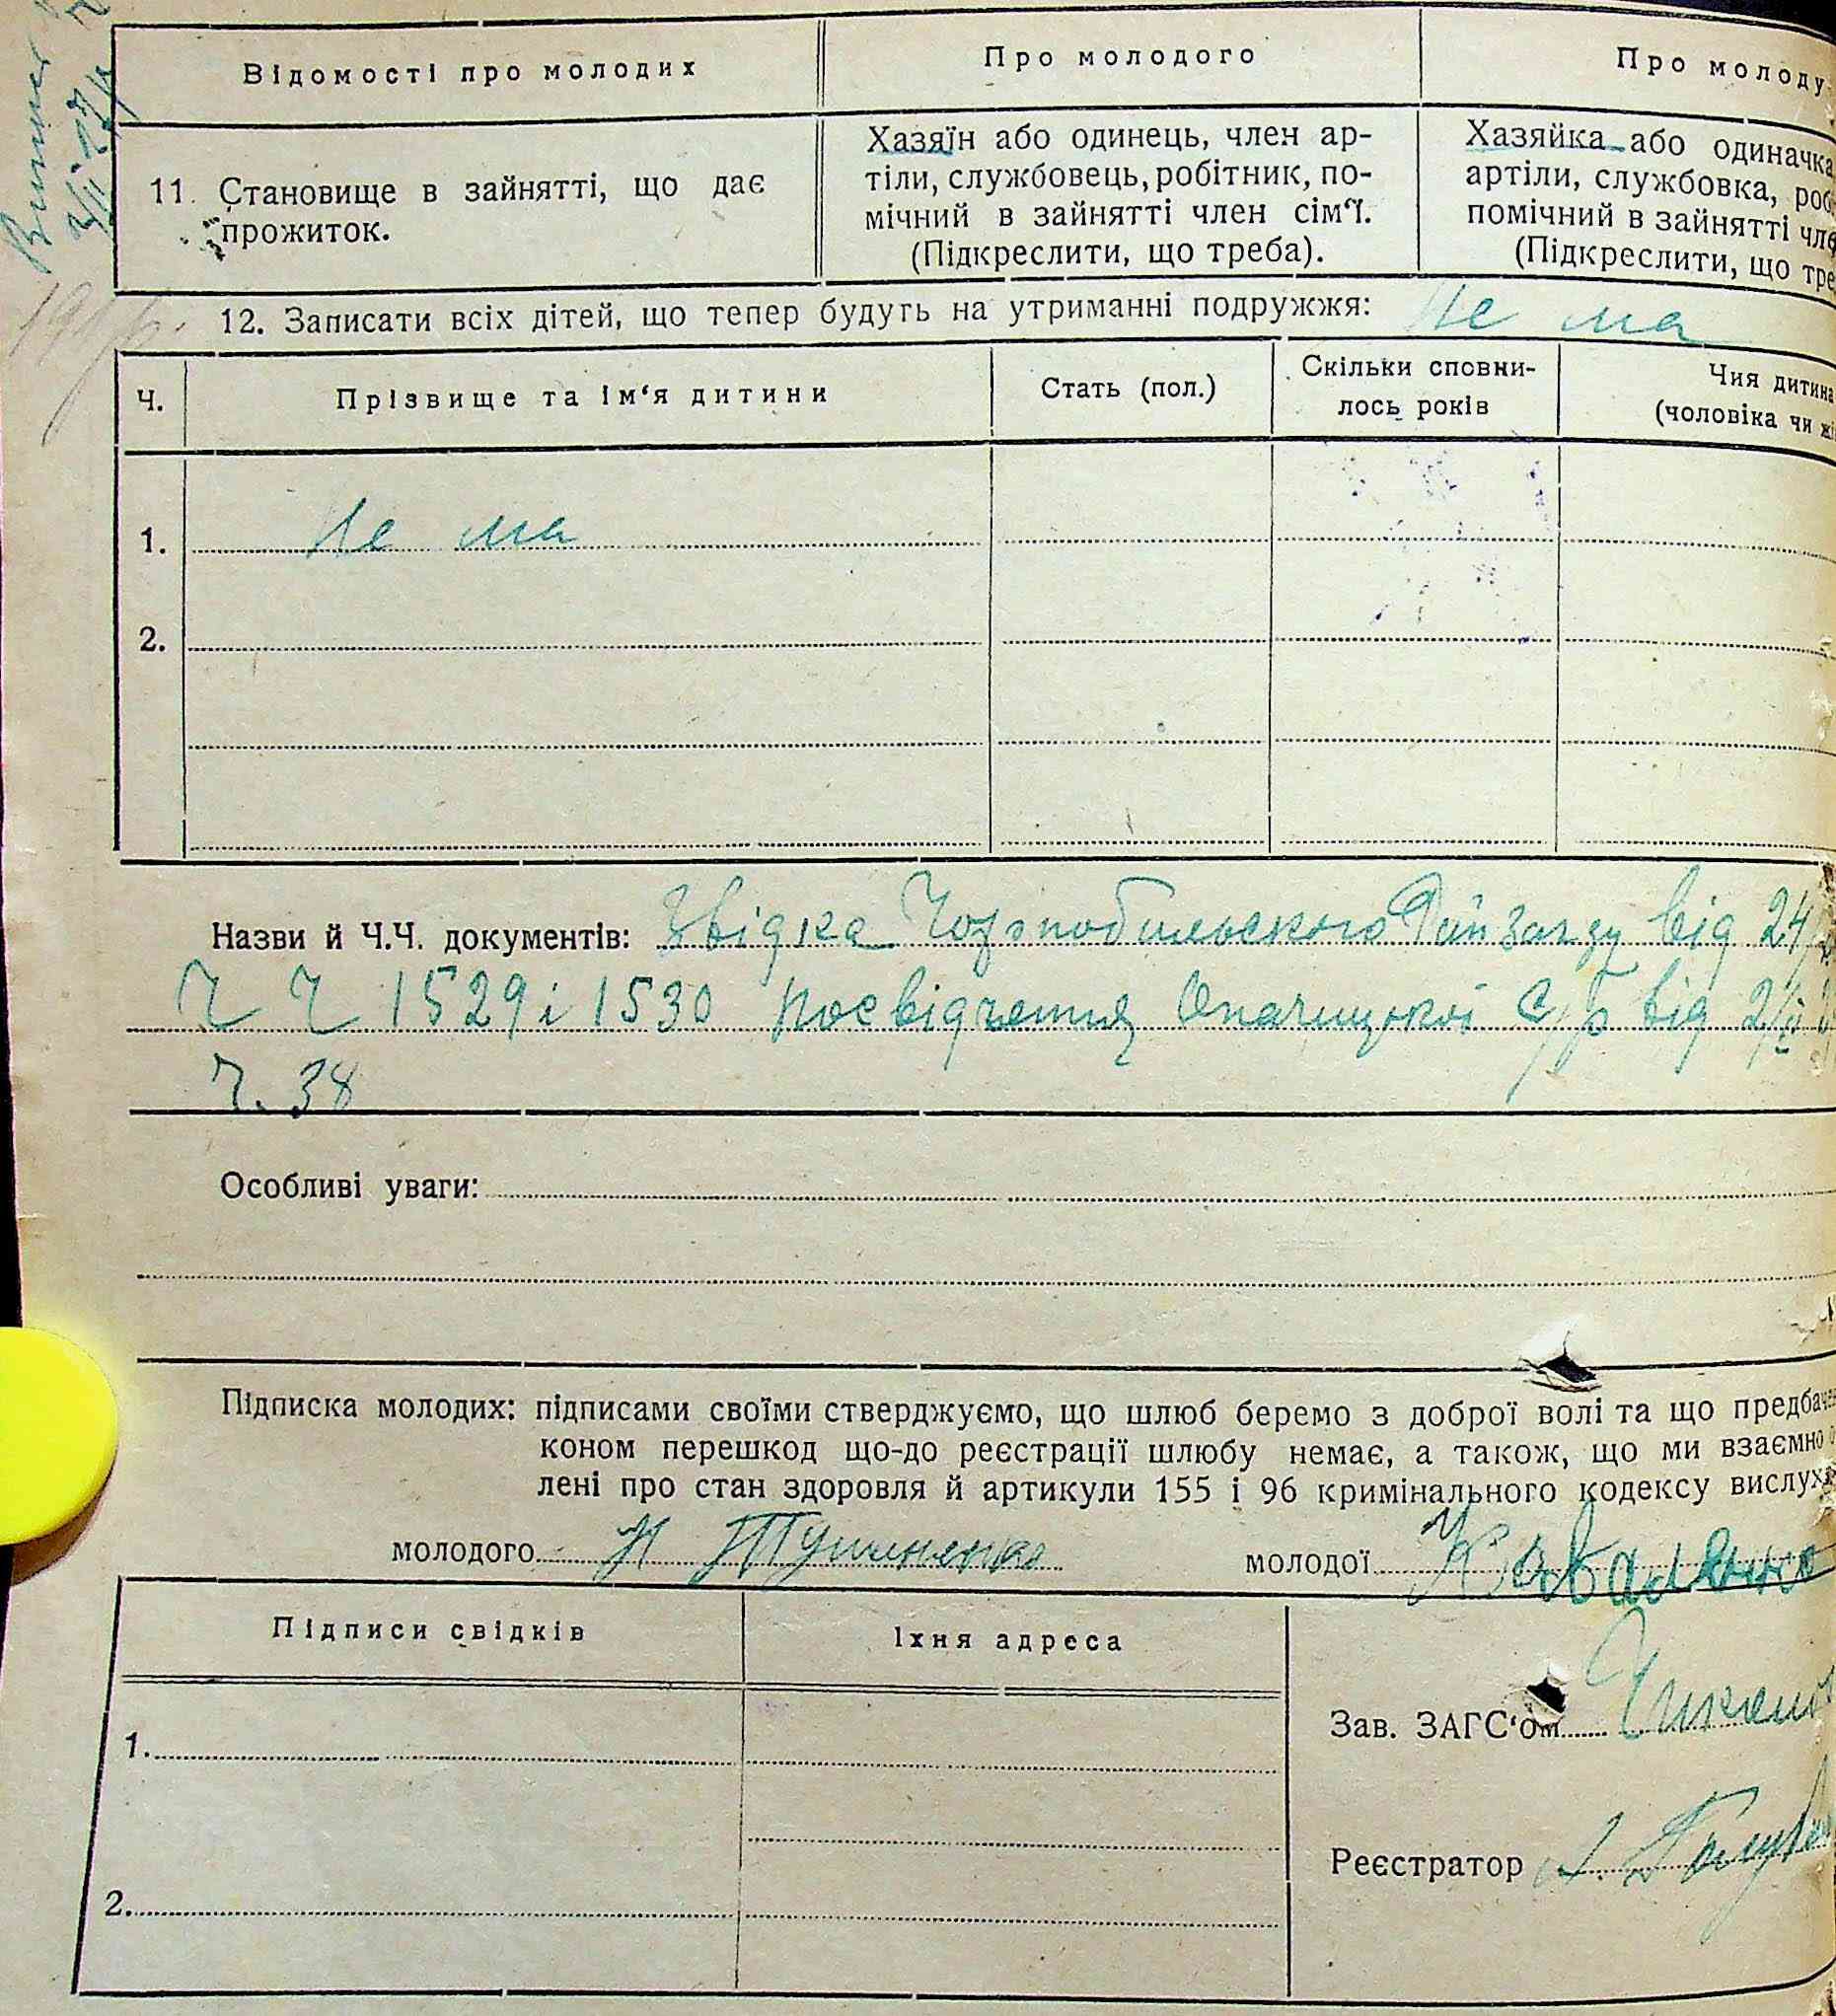 Відомості про молодих
Про молодого
Про молоду
11. Становище в зайнятті, що дає
прожиток.
Хазяїн або одинець, член ар-
тіли, службовець, робітник, по-
мічний в зайнятті член сім‘ї.
(Підкреслити, що треба).
Хазяйка або одиначка
артіли, службовка, роб
помічний в зайнятті чле
(Підкреслити, що тре
12. Записати всіх дітей, що тепер будуть на утриманні подружжя: Не ма
Ч.
Прізвище та ім‘я дитини
Стать (пол.)
Скільки сповни-
лось років
Чия дитина
(чоловіка чи жі
1. Не ма
2.
Назви й Ч.Ч. документів: Звідка Чорнобильського від 24
Ч Ч 1529 і 1530 посвідчення Опачицької С/р від 2/II
Ч. 38
Особливі уваги:
Підписка молодих: підписами своїми стверджуємо, що шлюб беремо з доброї волі та що предбачен
коном перешкод що-до реєстрації шлюбу немає, а також, що ми взаємно
лені про стан здоровля й артикули 155 і 96 кримінального кодексу вислух
молодого
молодої
Підписи свідків
Їхня адреса
1.
Зав. ЗАГС‘ом
Реєстратор
2.